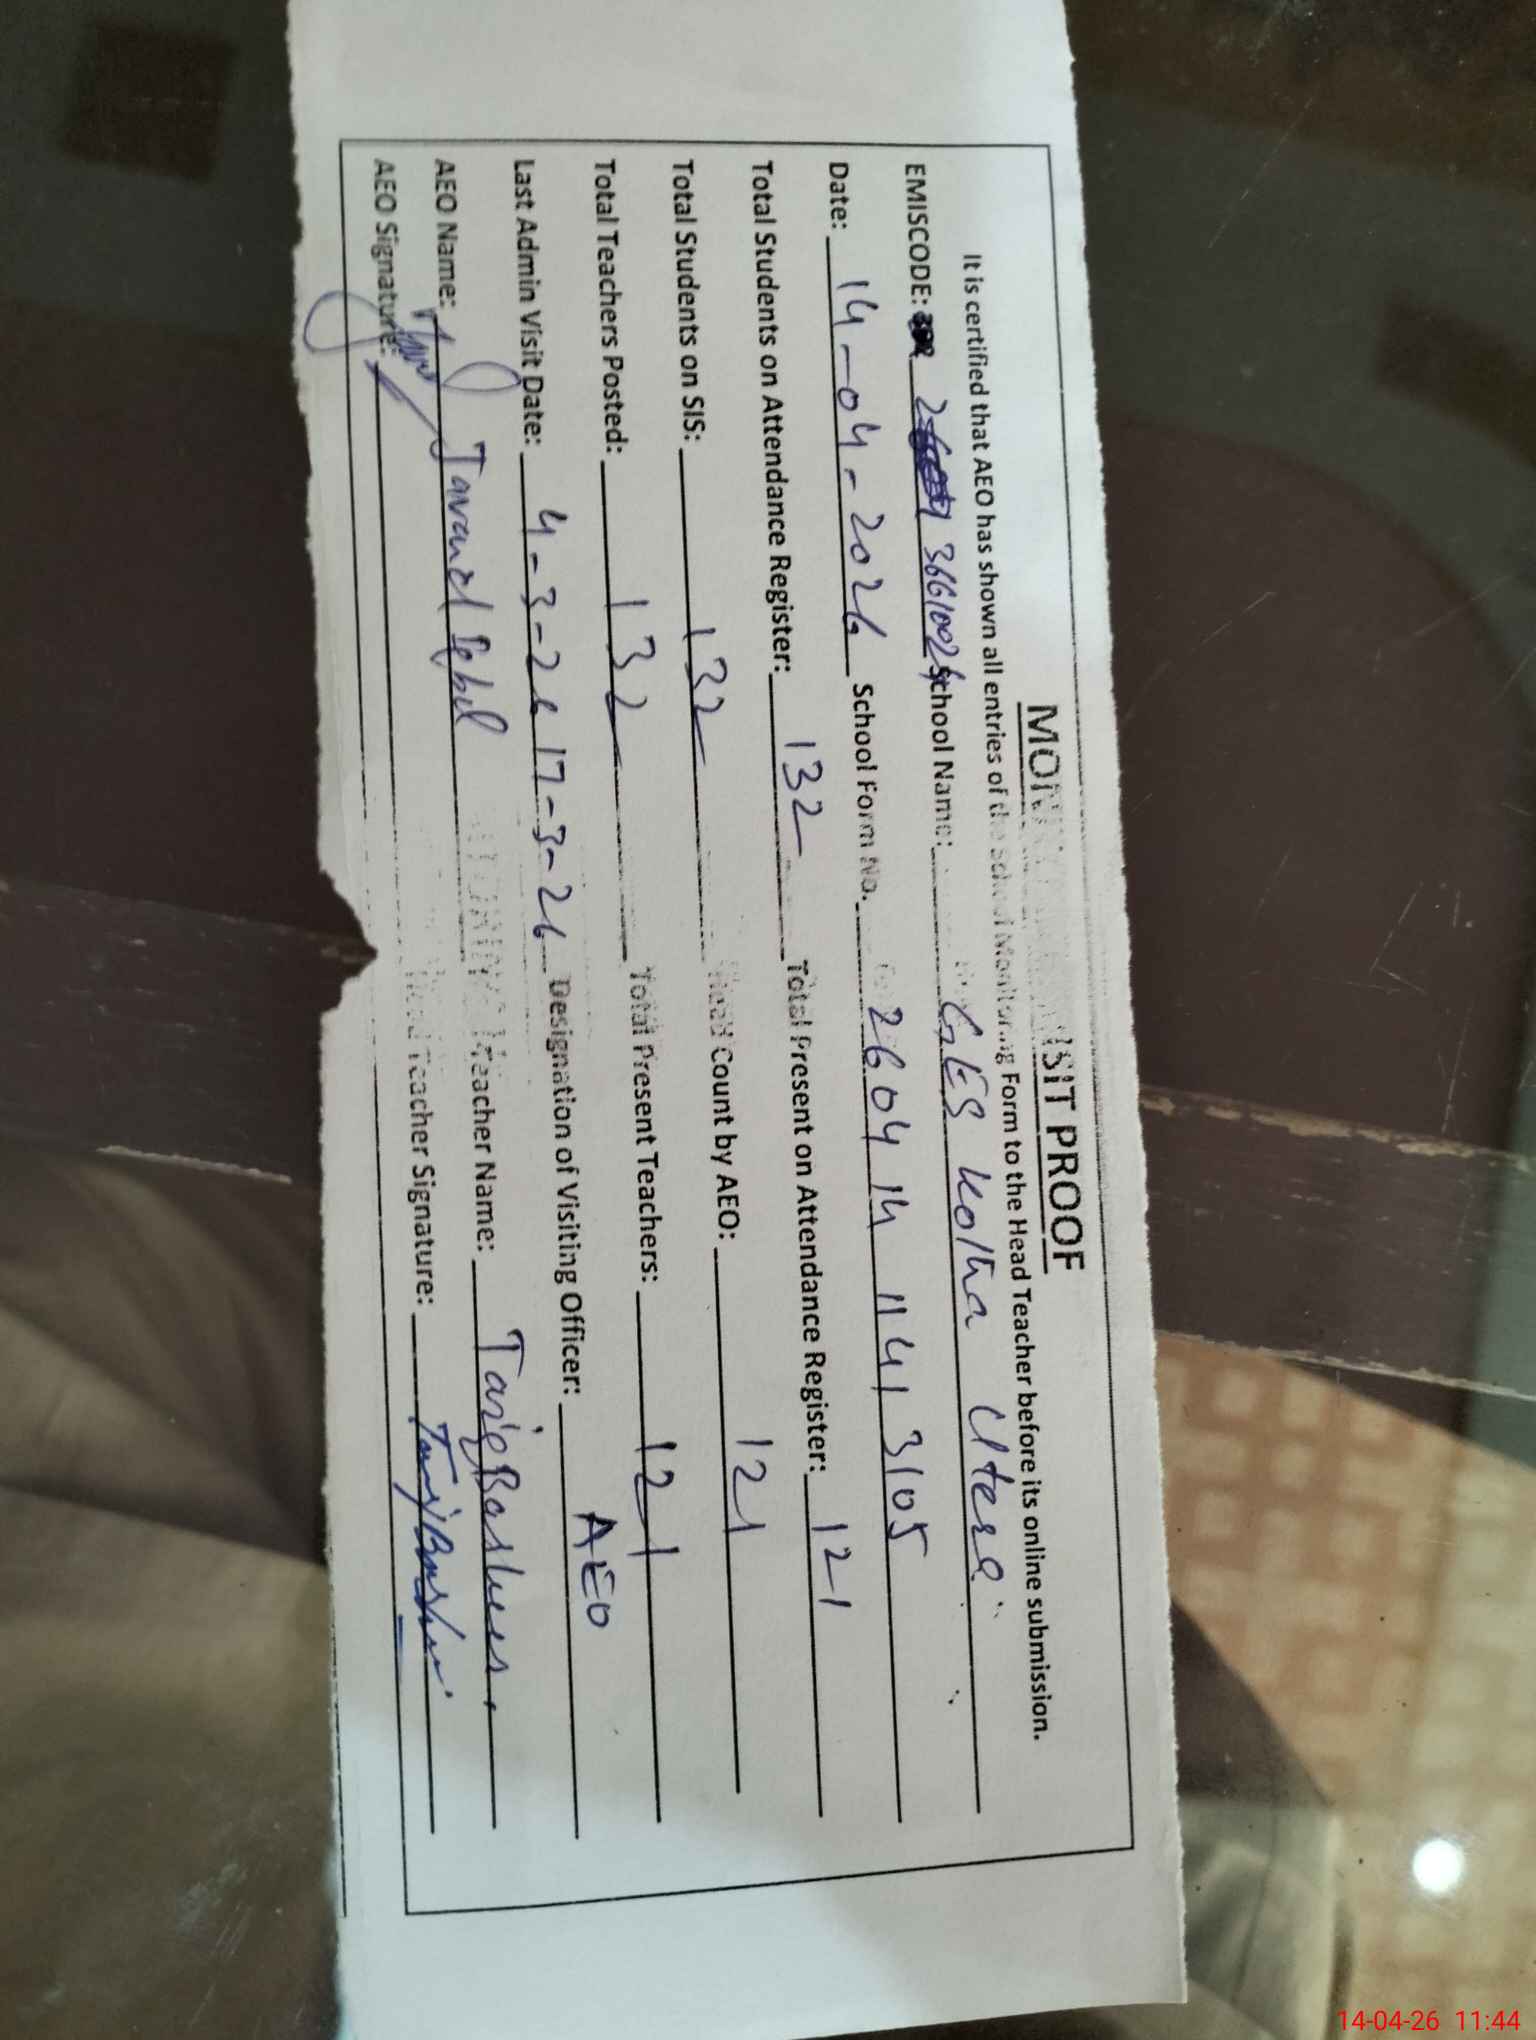 MON VISIT PROOF
It is certified that AEO has shown all entries of the School Monitoring Form to the Head Teacher before its online submission.
EMISCODE: 36610024 School Name: GES Kotha Utera
Date: 14-04-2026 School Form No. 26041411413105
Total Students on Attendance Register: 132 Total Present on Attendance Register: 121
Total Students on SIS: 132 Head Count by AEO: 121
Total Teachers Posted: 132 Total Present Teachers: 121
Last Admin Visit Date: 4-3-26 17-3-26 Designation of Visiting Officer: AEO
AEO Name: Teacher Name: Tariq Basheer
AEO Signature: Head Teacher Signature: Tariq Bashir
14-04-26 11:44